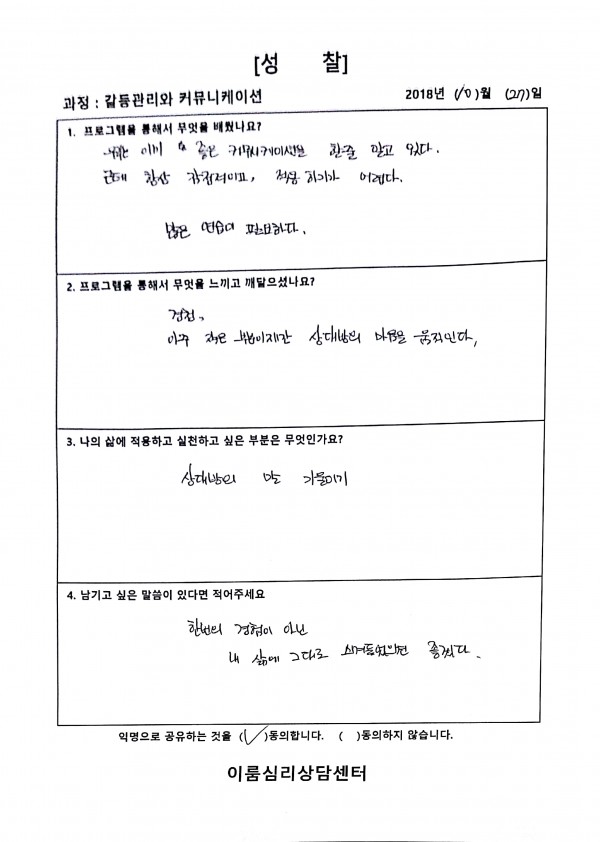 [성 찰]
과정 : 갈등관리와 커뮤니케이션
2018년 (10)월 (27)일
1. 프로그램을 통해서 무엇을 배웠나요?
나는 이미 좋은 커뮤니케이션을 할줄 알고 있다.
근데 항상 감정적이고, 적용하기가 어렵다.
많은 연습이 필요하다.
2. 프로그램을 통해서 무엇을 느끼고 깨달으셨나요?
경청,
아주 적은 부분이지만 상대방의 마음을 움직인다,
3. 나의 삶에 적용하고 실천하고 싶은 부분은 무엇인가요?
상대방의 말 기울이기
4. 남기고 싶은 말씀이 있다면 적어주세요
한번의 경험이 아닌
내 삶에 그대로 스며들었으면 좋겠다.
익명으로 공유하는 것을 (✓)동의합니다. ( )동의하지 않습니다.
이룸심리상담센터